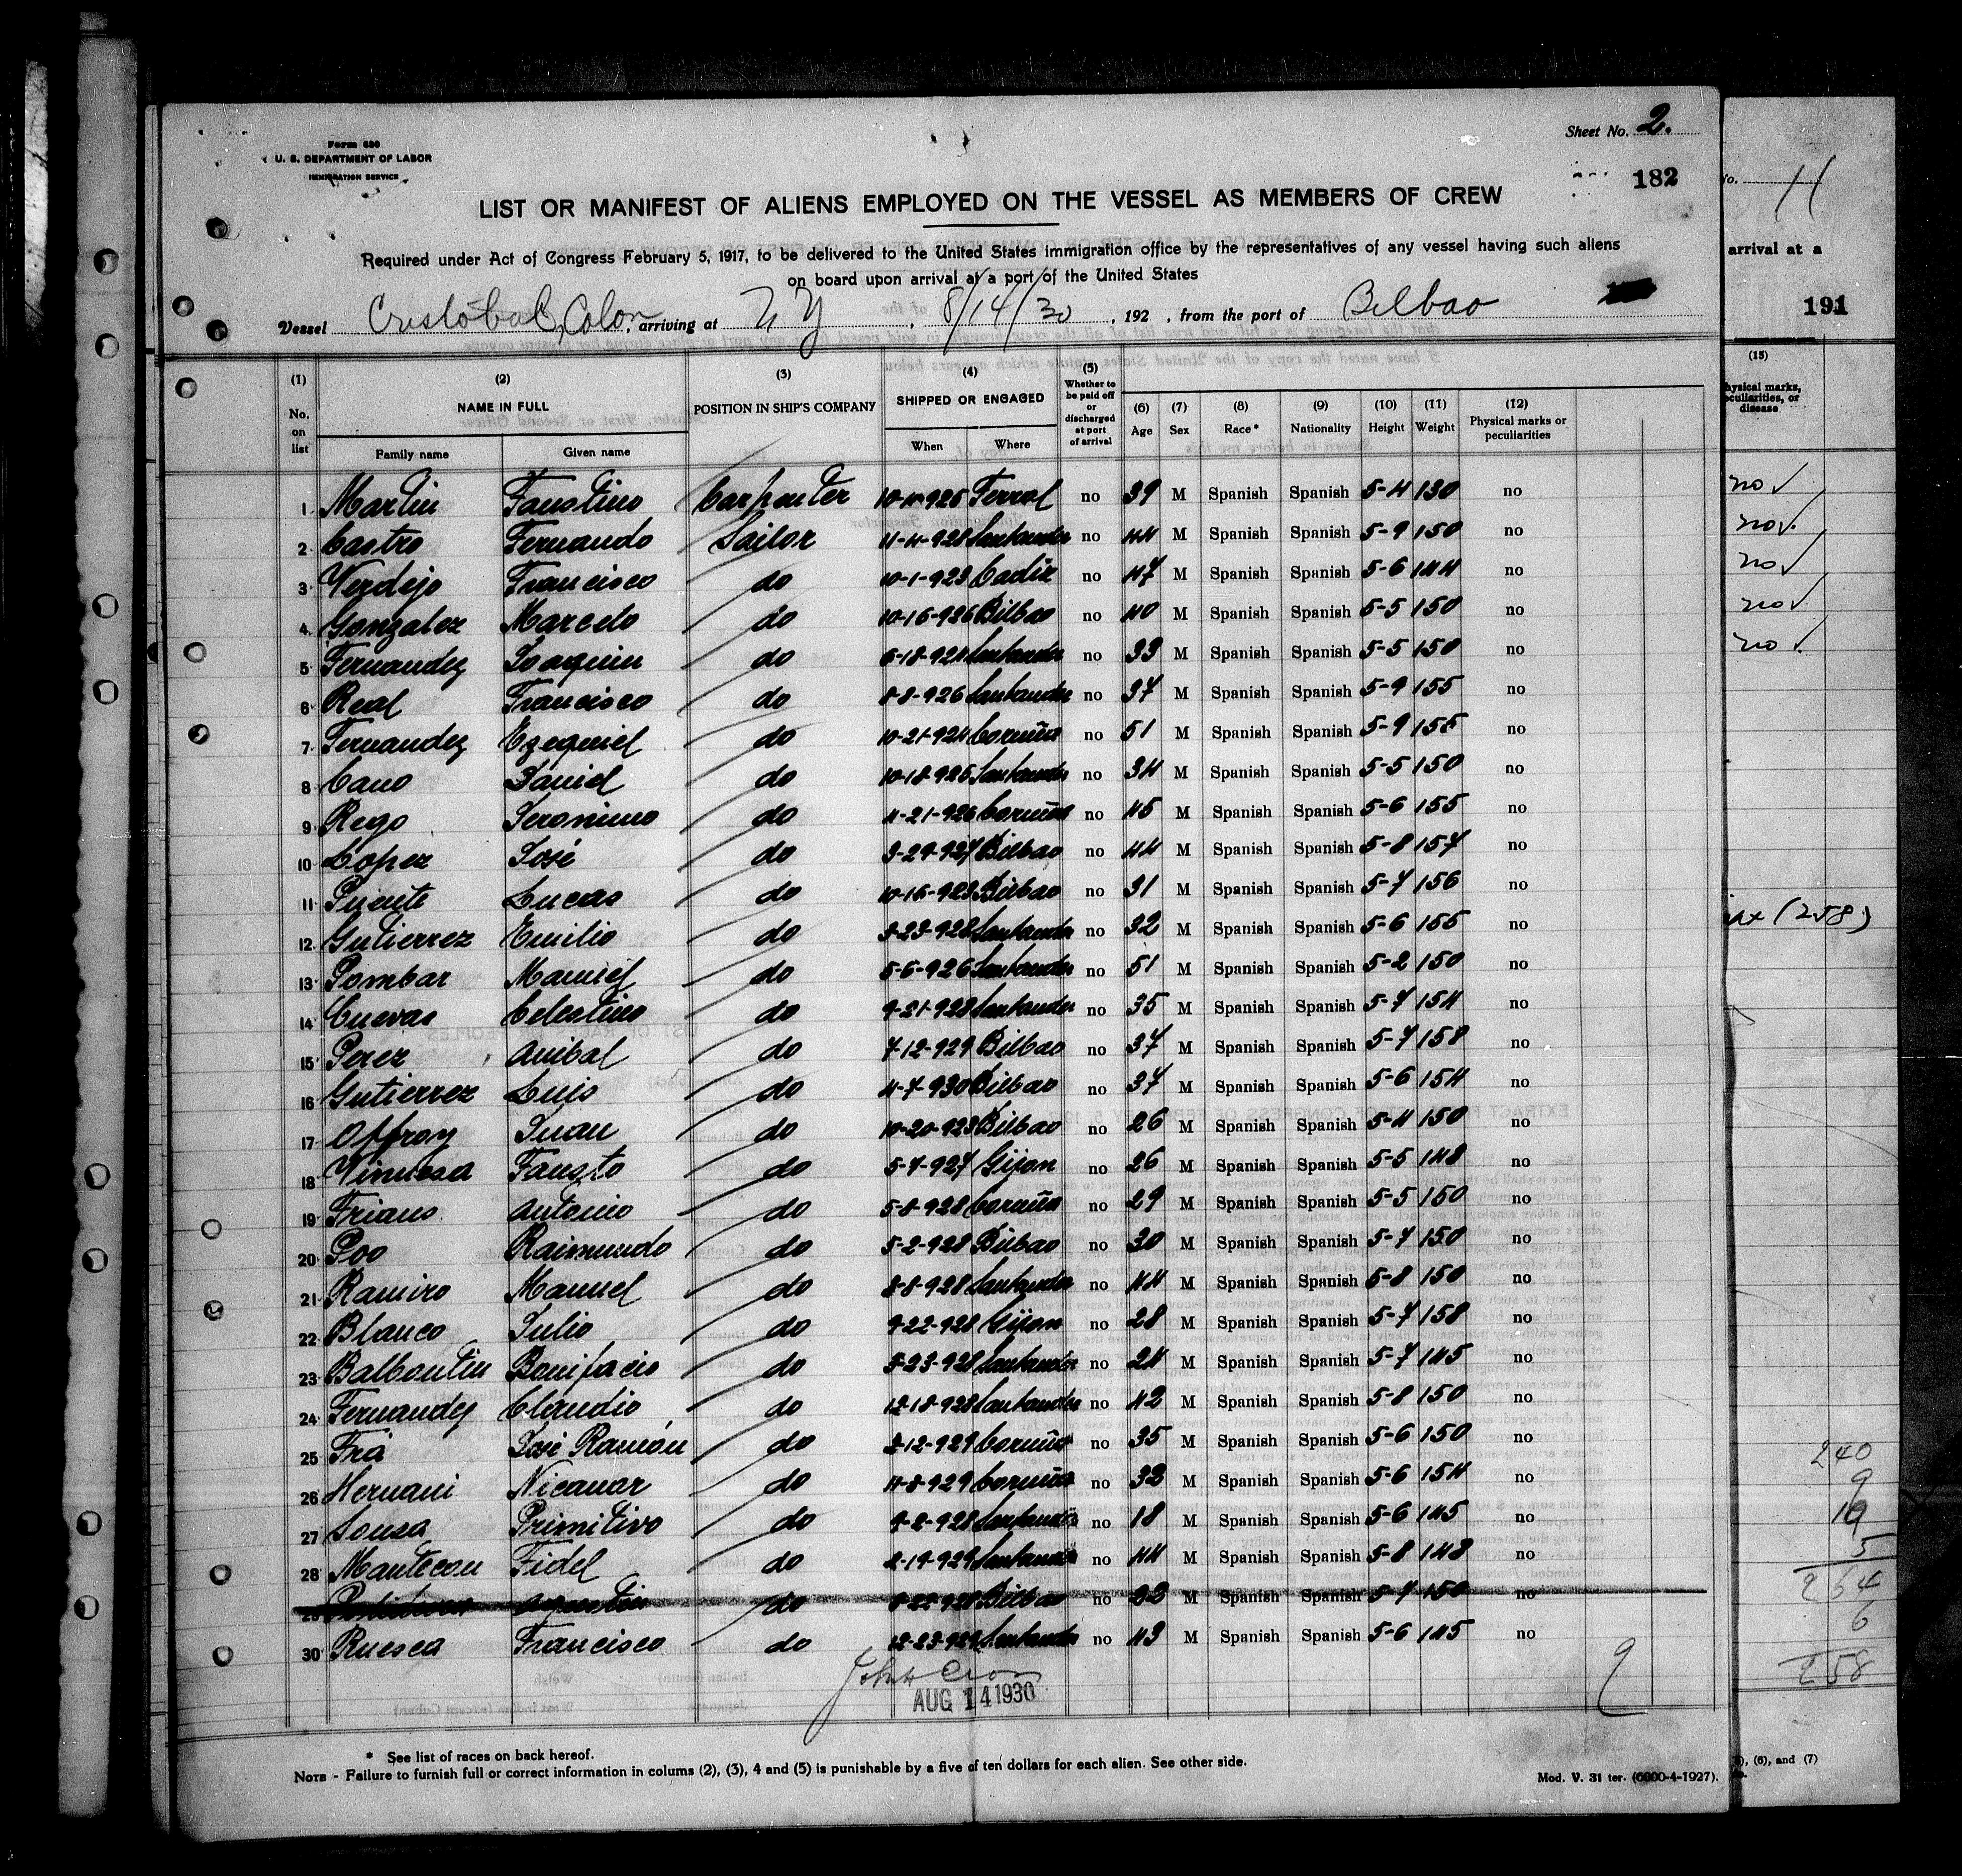 Sheet No. 2.
Form 680
U. S. DEPARTMENT OF LABOR
IMMIGRATION SERVICE
182
LIST OR MANIFEST OF ALIENS EMPLOYED ON THE VESSEL AS MEMBERS OF CREW
Required under Act of Congress February 5, 1917, to be delivered to the United States immigration office by the representatives of any vessel having such aliens
on board upon arrival at a port of the United States
Vessel Cristobal Colon, arriving at N Y, 8/14/30, 192 , from the port of Bilbao
(1) No. on list (2) NAME IN FULL Family name Given name (3) POSITION IN SHIP'S COMPANY (4) SHIPPED OR ENGAGED When Where (5) Whether to be paid off or discharged at port of arrival (6) Age (7) Sex (8) Race* (9) Nationality (10) Height (11) Weight (12) Physical marks or peculiarities
1 Martin Faustino Carpenter 925 Ferrol no 39 M Spanish Spanish 5-4 130 no
2 Castro Fernando Sailor 928 Santander no 44 M Spanish Spanish 5-9 150 no
3 Verdejo Francisco do 10-1-923 Cadiz no 47 M Spanish Spanish 5-6 144 no
4 Gonzalez Marcelo do 10-16-926 Bilbao no 40 M Spanish Spanish 5-5 150 no
5 Fernandez Joaquin do 6-18-924 Santander no 33 M Spanish Spanish 5-5 150 no
6 Real Francisco do 8-8-926 Santander no 37 M Spanish Spanish 5-9 155 no
7 Fernandez Ezequiel do 10-21-924 Coruña no 51 M Spanish Spanish 5-9 155 no
8 Cano Daniel do 10-18-925 Santander no 34 M Spanish Spanish 5-5 150 no
9 Rego Jeronimo do 4-21-926 Coruña no 45 M Spanish Spanish 5-6 155 no
10 Lopez José do 3-29-927 Bilbao no 44 M Spanish Spanish 5-8 157 no
11 Puente Lucas do 10-16-923 Bilbao no 31 M Spanish Spanish 5-7 156 no
12 Gutierrez Emilio do 3-23-928 Santander no 32 M Spanish Spanish 5-6 155 no
13 Pombar Manuel do 5-6-926 Santander no 51 M Spanish Spanish 5-2 150 no
14 Cuevas Celestino do 9-21-928 Santander no 35 M Spanish Spanish 5-7 154 no
15 Perez Anibal do 7-12-929 Bilbao no 37 M Spanish Spanish 5-7 158 no
16 Gutierrez Luis do 4-7-930 Bilbao no 37 M Spanish Spanish 5-6 154 no
17 Offroy Juan do 10-20-923 Bilbao no 26 M Spanish Spanish 5-4 150 no
18 Vinuesa Fausto do 5-7-927 Gijon no 26 M Spanish Spanish 5-5 148 no
19 Frians Antonio do 5-8-928 Coruña no 29 M Spanish Spanish 5-5 150 no
20 Poo Raimundo do 5-2-928 Bilbao no 30 M Spanish Spanish 5-7 150 no
21 Ramiro Manuel do 8-8-928 Santander no 44 M Spanish Spanish 5-8 150 no
22 Blanco Julio do 9-22-928 Gijon no 28 M Spanish Spanish 5-7 158 no
23 Balbontin Bonifacio do 928 Santander no 24 M Spanish Spanish 5-7 145 no
24 Fernandez Claudio do 12-18-928 Santander no 42 M Spanish Spanish 5-8 150 no
25 Fra José Ramón do 2-12-929 Coruña no 35 M Spanish Spanish 5-6 150 no
26 Hernani Nicanor do 4-8-929 Coruña no 32 M Spanish Spanish 5-6 154 no
27 Sousa Primitivo do 9-2-928 Santander no 18 M Spanish Spanish 5-6 145 no
28 Mantecon Fidel do 2-19-929 Santander no 44 M Spanish Spanish 5-8 148 no
29 do 928 Bilbao no M Spanish Spanish 5-7 150 no
30 Ruesca Francisco do 12-23-929 Santander no 43 M Spanish Spanish 5-6 145 no
John
AUG 14 1930
9
* See list of races on back hereof.
NOTE - Failure to furnish full or correct information in colums (2), (3), 4 and (5) is punishable by a five of ten dollars for each alien. See other side.
Mod. V. 31 ter. (6000-4-1927).
No. 11
arrival at a
191
(15)
hysical marks,
eculiarities, or
disease
no ✓
no ✓
no ✓
no ✓
no ✓
(258)
240
9
10
5
264
6
258
), (6), and (7)